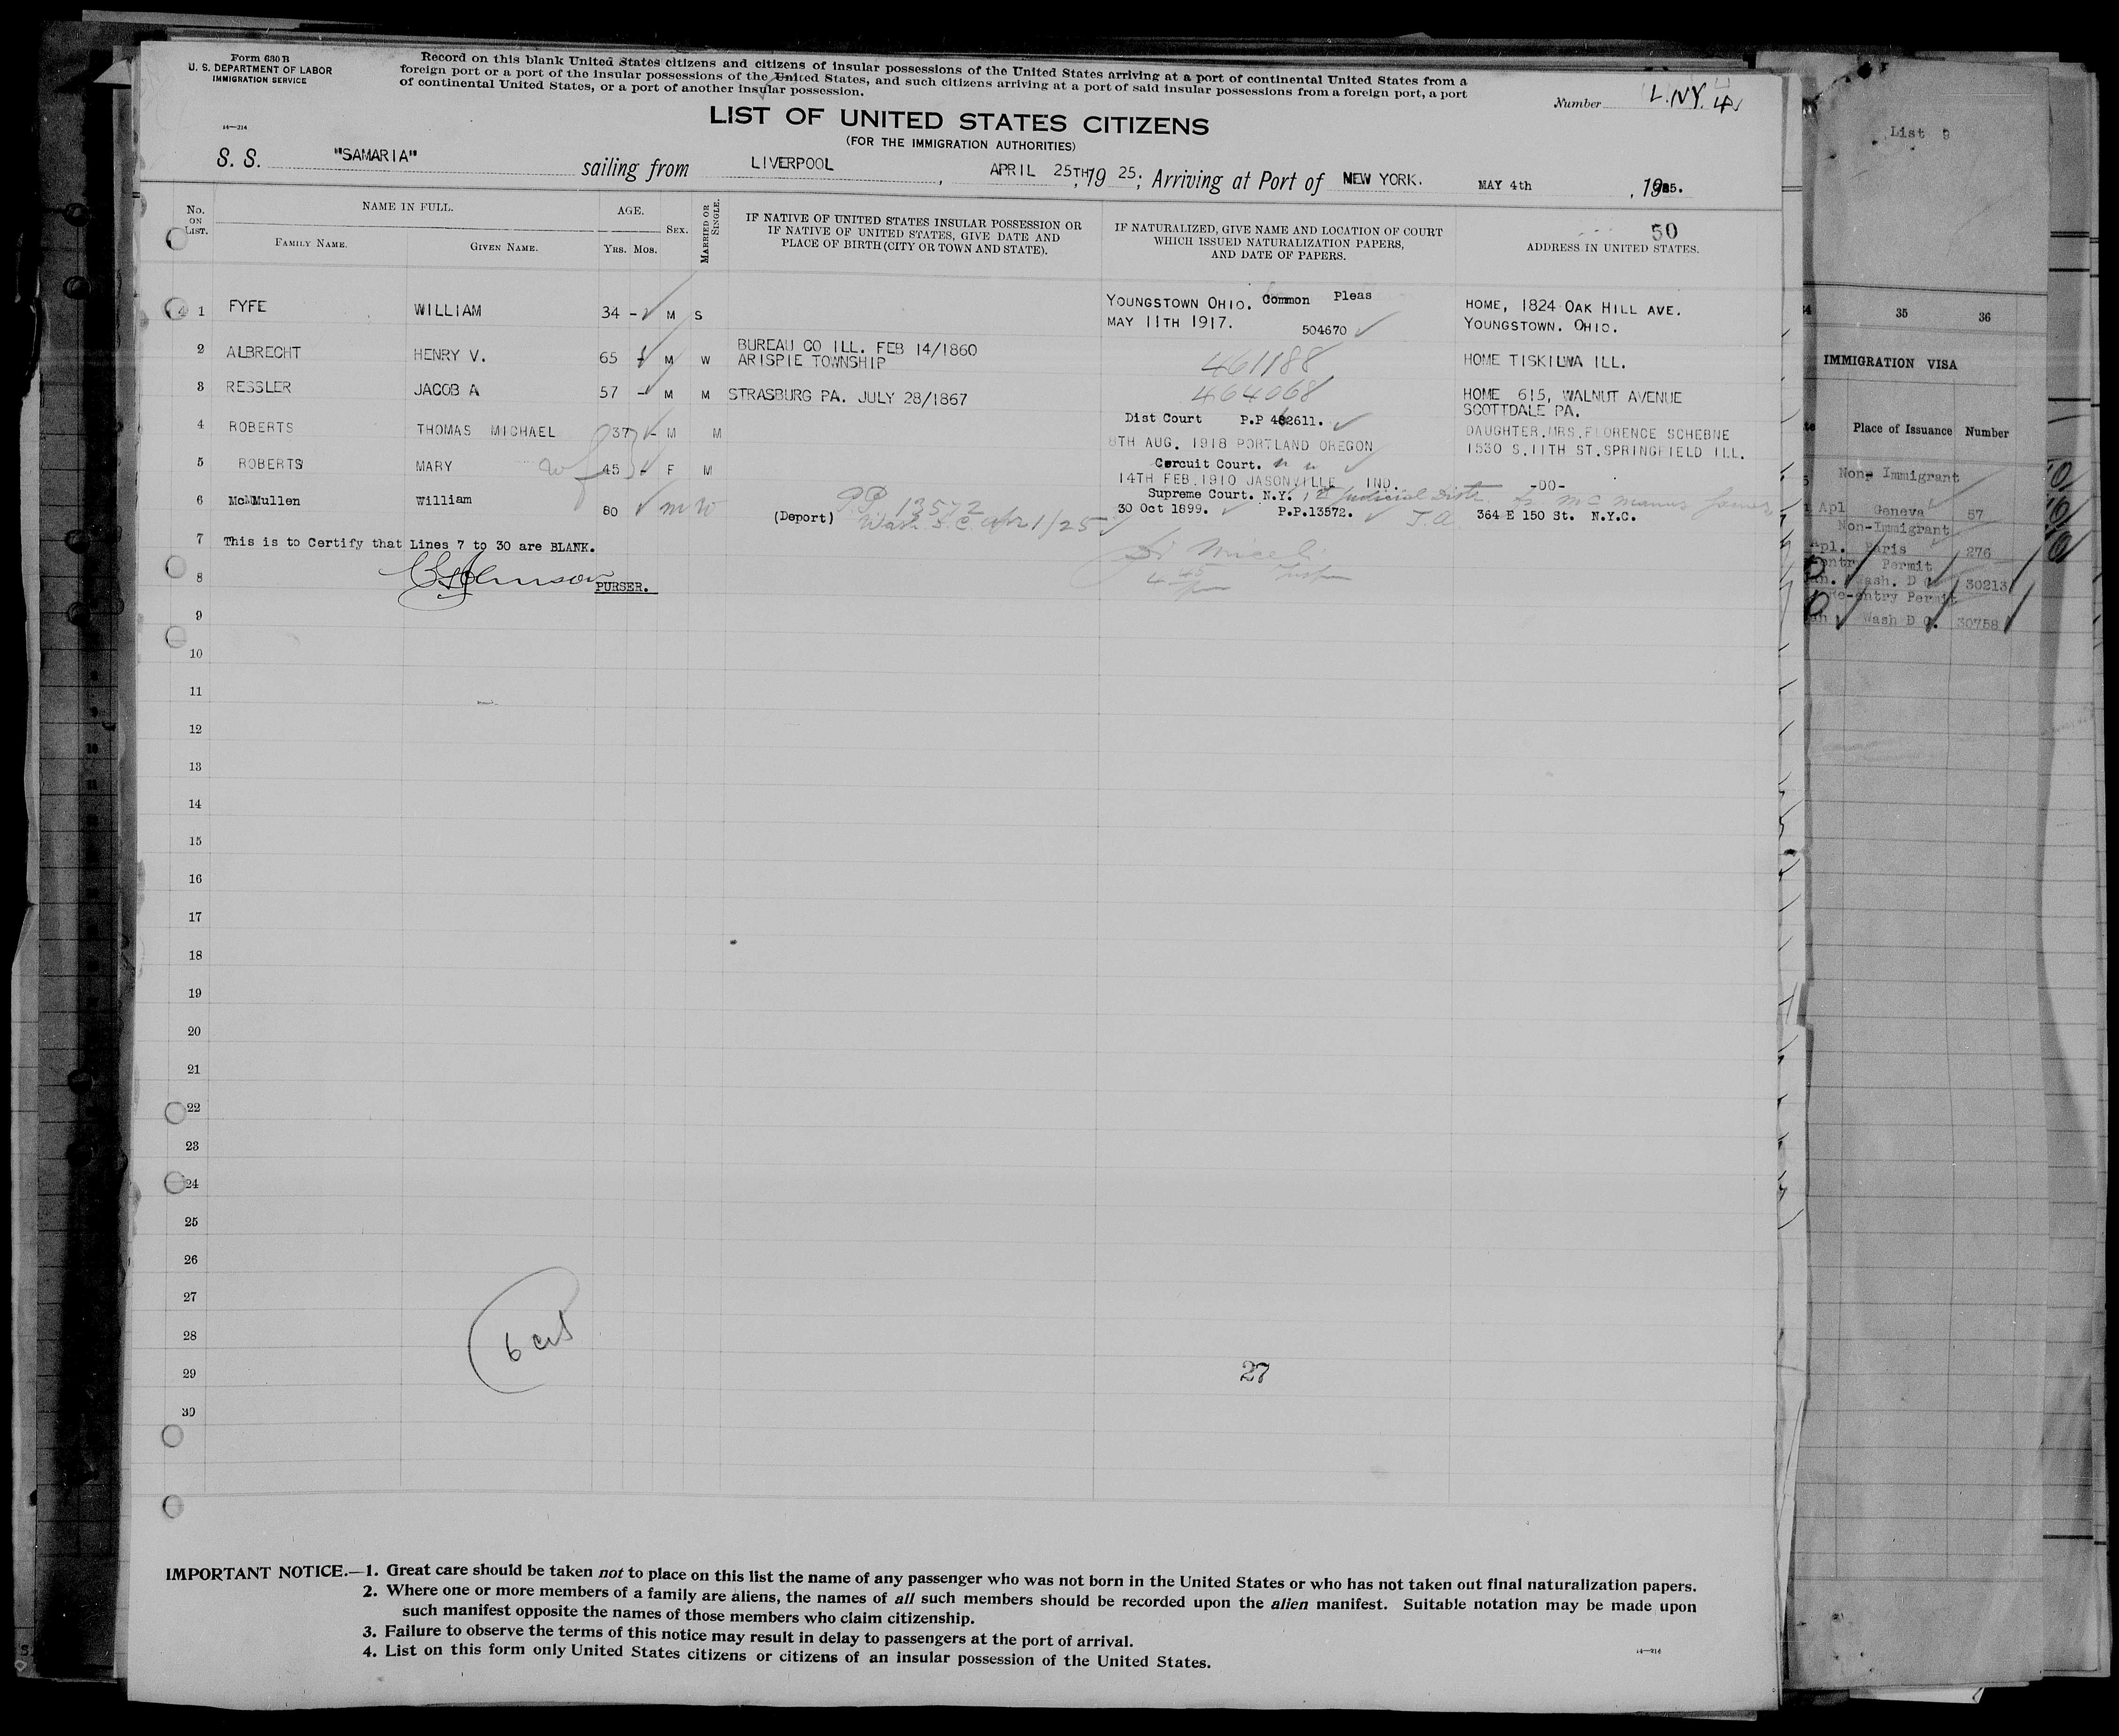 Form 630 B
U. S. DEPARTMENT OF LABOR
IMMIGRATION SERVICE
Record on this blank United States citizens and citizens of insular possessions of the United States arriving at a port of continental United States from a
foreign port or a port of the insular possessions of the United States, and such citizens arriving at a port of said insular possessions from a foreign port, a port
of continental United States, or a port of another insular possession.
Number L.NY. 4
LIST OF UNITED STATES CITIZENS
(FOR THE IMMIGRATION AUTHORITIES)
14—214
S. S. "SAMARIA" sailing from LIVERPOOL, APRIL 25TH, 19 25; Arriving at Port of NEW YORK. MAY 4th, 1925.
No. ON LIST.
NAME IN FULL.
FAMILY NAME. GIVEN NAME.
AGE.
Yrs. Mos.
SEX.
MARRIED OR SINGLE.
IF NATIVE OF UNITED STATES INSULAR POSSESSION OR
IF NATIVE OF UNITED STATES, GIVE DATE AND
PLACE OF BIRTH (CITY OR TOWN AND STATE).
IF NATURALIZED, GIVE NAME AND LOCATION OF COURT
WHICH ISSUED NATURALIZATION PAPERS,
AND DATE OF PAPERS.
50
ADDRESS IN UNITED STATES.
1 FYFE WILLIAM 34 - M S YOUNGSTOWN OHIO. Common Pleas HOME, 1824 OAK HILL AVE.
MAY 11TH 1917. 504670 YOUNGSTOWN. OHIO.
2 ALBRECHT HENRY V. 65 M W BUREAU CO ILL. FEB 14/1860
ARISPIE TOWNSHIP 461188 HOME TISKILWA ILL.
3 RESSLER JACOB A 57 - M M STRASBURG PA. JULY 28/1867 464068 HOME 615, WALNUT AVENUE
SCOTTDALE PA.
4 ROBERTS THOMAS MICHAEL 37 - M M Dist Court P.P 482611. DAUGHTER.MRS.FLORENCE SCHEBNE
8TH AUG. 1918 PORTLAND OREGON 1530 S.11TH ST.SPRINGFIELD ILL.
5 ROBERTS MARY wf 45 - F M Cercuit Court.
14TH FEB.1910 JASONVILLE IND. -DO-
6 McMMullen William 80 m W (Deport) PP 13572 Supreme Court. N.Y. 1st Judicial Distr.
Wash. D.C. Apr 1/25 30 Oct 1899. P.P.13572. 364 E 150 St. N.Y.C.
7 This is to Certify that Lines 7 to 30 are BLANK.
8 PURSER.
9
10
11
12
13
14
15
16
17
18
19
20
21
22
23
24
25
26
27
28 6 cit
29 27
30
IMPORTANT NOTICE.—1. Great care should be taken not to place on this list the name of any passenger who was not born in the United States or who has not taken out final naturalization papers.
2. Where one or more members of a family are aliens, the names of all such members should be recorded upon the alien manifest. Suitable notation may be made upon
such manifest opposite the names of those members who claim citizenship.
3. Failure to observe the terms of this notice may result in delay to passengers at the port of arrival.
4. List on this form only United States citizens or citizens of an insular possession of the United States.
14—214
List 9
35 36
IMMIGRATION VISA
Place of Issuance Number
Non- Immigrant
Apl Geneva 57
Non-Immigrant
Apl. Paris 276
Permit
Wash. D C 30213
Re-entry Permit
Wash D C. 30758